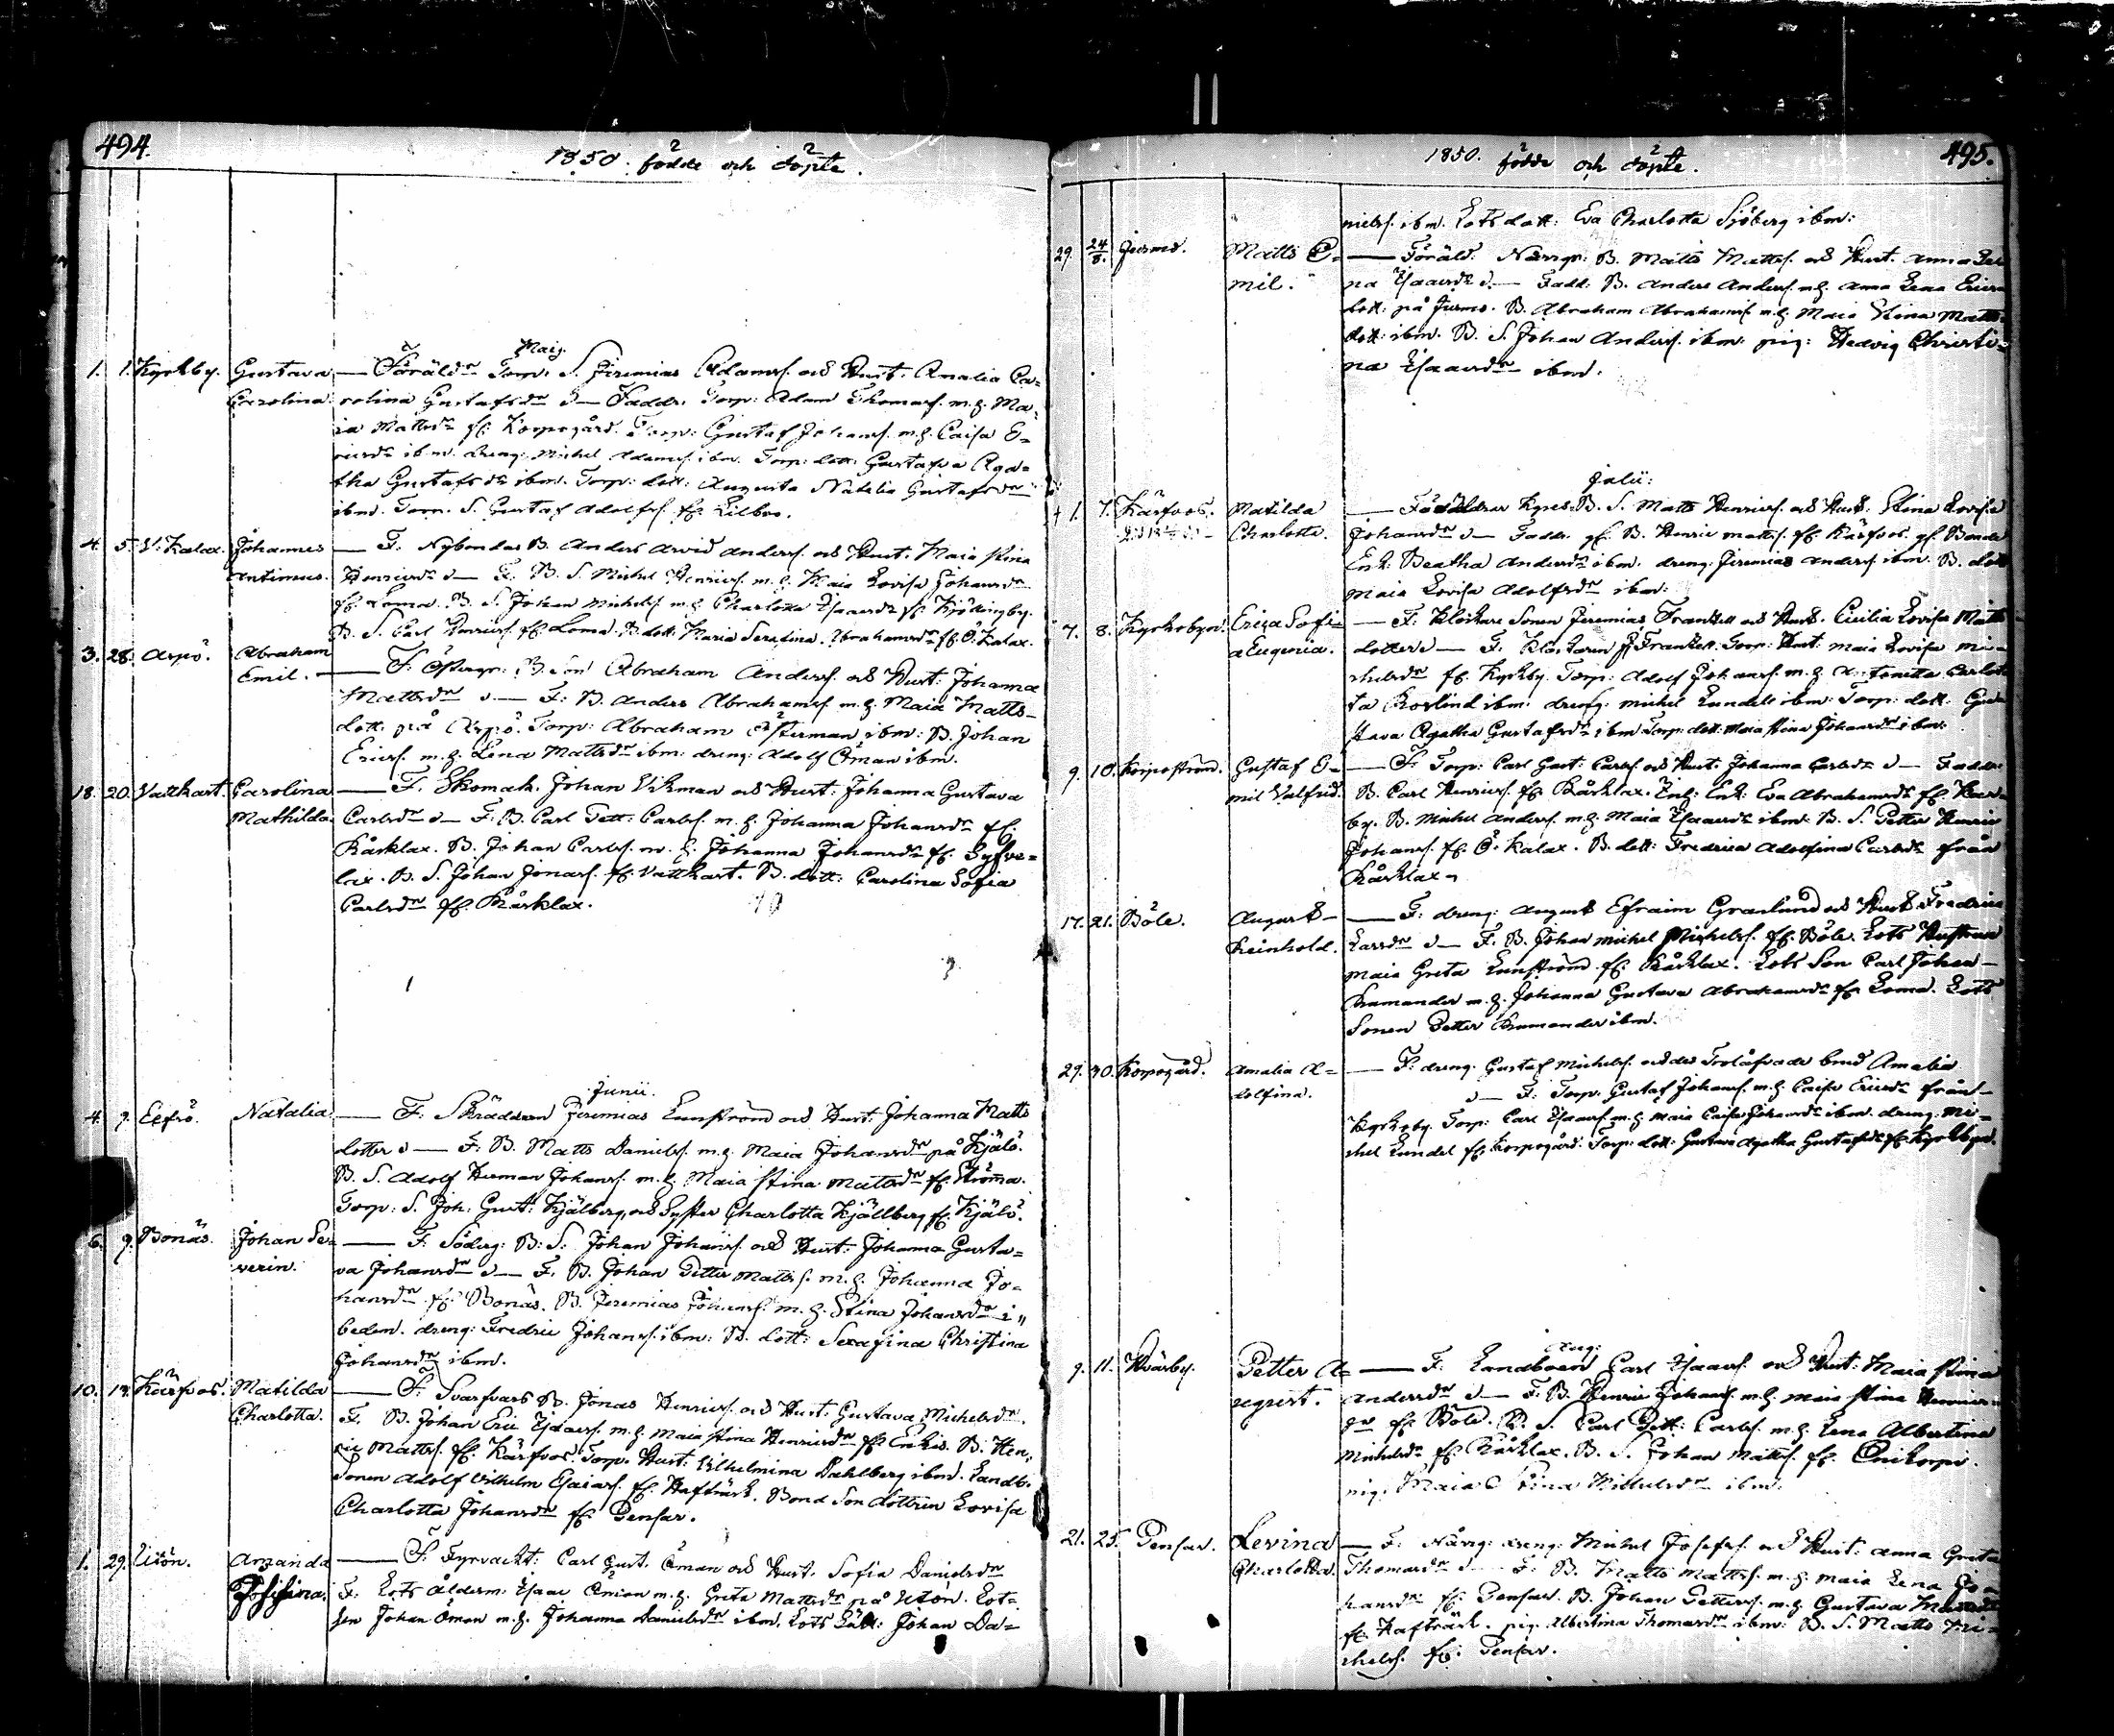 494.
1850. födde och döpte.
Maij.
1. 1. Kyrkby. Gustava — Föräldr Torp: S. Jeremias Adamss. och Hust. Amalia Ca=
Carolina. rolina Gustafsdr — Faddr. Torp: Adam Thomass. m.h. Ma=
ia Mattsdr fr. Korpogård. Torp: Gustaf Johanss. m.h. Caisa E=
ricsdr ibm. dreng: Michel Adamss. ibm. Torp: dott: Gustafva Aga=
tha Gustafsdr ibm. Torp: dott: Augusta Natalia Gustafsdr
ibm. Torp. S. Gustaf Adolfss. fr.
4. 5. V. Kalax. Johannes — F: Nybondas B. Anders Arvid Anderss. och Hust: Maia Stina
Antimus. Henricsdr — F. B. S. Michel Henricss. m.h. Maia Lovisa Johansdr
fr. Loma. B. S. Johan Michelss. m.h. Charlotta Isaacsdr fr.
B. S. Carl Henricss. fr. Loma. B. dott: Maria Serafina Abrahamsdr fr. Ö. Kalax.
3. 28. Aspö. Abraham
Emil. — F. Östergr: B. Son Abraham Anderss. och Hust: Johanna
Mattsdr — F: B. Anders Abrahamss. m.h. Maia Matts-
dott. på Aspö. Torp: Abraham Österman ibm: B. Johan
Ericss. m.h. Lena Mattsdr ibm: dreng: Adolf Öman ibm.
18. 20. Vattkast. Carolina — F. Skomak. Johan Vikman och Hust: Johanna Gustava
Mathilda. Carlsdr — F. B. Carl Pett: Carlss. m.h. Johanna Johansdr fr.
Kårklax. B. Johan Carlss. m.h. Johanna Johansdr fr. Gyfve=
lax. B. S. Johan Jonass. fr. Vattkast. B. dott: Carolina Sofia
Carlsdr fr. Kårklax.
Junii.
4. 9. Elfsö. Natalia — F: Skräddaren Jeremias Lunström och Hust: Johanna Matts
dotter — F: B. Matts Daniels. m.h. Maia Johansdr på Kjälö.
B. S. Adolf Herman Johanss. m.h. Maia Stina Mattsdr fr. Strömma.
Torp: S. Joh: Gust: Kjälberg, och Syster Charlotta Kjällberg fr. Kjälö.
6. 9. Bonäs. Johan Se= — F. Söderg: B: S: Johan Johanss. och Hust: Johanna Gusta=
verin. va Johansdr — F. B. Johan Petter Mattss. m.h. Johanna Jo=
hansdr fr. Bonäs. B. Jeremias Johanss. m.h. Stina Johansdr i"
bedem. dreng: Fredric Johanss. ibm: B. dott: Serafina Christina
Johansdr ibm.
10. 13. Kärfvos. Matilda — F. Svarfvars B. Jonas Henricss. och Hust: Gustava Michelsdr.
Charlotta. F. B. Johan Eric Isaacss. m.h. Maia Stina Henricsdr fr. Enkis. B. Hen=
ric Mattss. fr. Kärfvos. Torp. Hust. Vilhelmina Dahlberg ibm. Landb.
Sonen Adolf Vilhelm Esaiass. fr. Hafträsk. Bond Son dottren Lovisa
Charlotta Johansdr fr. Pensar.
1. 29. Utön. Amanda — F. Fyrvackt: Carl Gust. Öman och Hust. Sofia Danielsdr
Josefina. F. Lots Ålderm. Isaac Öman m.h. Greta Mattsdr på Utön. Lot=
sen Johan Öman m.h. Johanna Danielsdr ibm. Lots Johan Da=
495.
1850. födde och döpte.
nielss. ibm. Lots dott: Eva Charlotta Sjöberg ibm:
29. 24/8. Jurmo. Matts E= — Föräld. Norrgr: B. Matts Mattss. och Hust. Anna Le
mil. na Isaacsdr — Fadd: B. Anders Anderss. m.h. Anna Lena Erics
dott: på Jurmo. B. Abraham Abrahamss. m.h. Maia Stina Matts
dott: ibm. B. S. Johan Anderss. ibm: pig: Hedvig Christi=
na Isaacsdr ibm.
Julii:
1. 7. Kärfvos. Matilda — Föräldrar B. S. Matts Henricss. och Hust: Stina Lovisa
Charlotta. Johansdr — Faddr. B. Henric Mattss. fr. Kärfvos. Bonde
Enk: Beatha Andersdr ibm. dreng: Jeremias Anderss. ibm. B. dott
Maia Lovisa Adolfsdr ibm:
7. 8. Kyrkobyn. Erica Sofi= — F: Klockare Sonen Jeremias Frankell och Hust. Cicilia Lovisa Matts
a Eugenia. dotter — F: Klockaren J. Frankell. Torp: Hust: Maia Lovisa Mi=
chelsdr fr. Kyrkby. Torp: Adolf Johanss. m.h. Antonetta Carlot
ta Roslind ibm: dreng: Michel Lundell ibm: Torp: dott: Gus
stava Agatha Gustafsdr ibm Torp: dott: Maia Stina Johansdr ibm.
9. 10. Korpoström. Gustaf E= — F: Torp: Carl Gust: Carlss. och Hust: Johanna Carlsdr — Faddr
mil Valfrid. B. Carl Henricss. fr. Kårklax. Enk: Eva Abrahamsdr fr.
by. B. Michel Anderss. m.h. Maia Isaacsdr ibm: B. S. Petter Henric
Johanss. fr. Ö. Kalax. B. dott: Fredrica Adolfina Carlsdr från
Kårklax.
17. 21. Böle. August — F: dreng: August Efraim Granlund och Hust: Fredrica
Reinhold. Larsdr — F. B. Johan Michel Michelss. fr. Böle. Lots Hustrun
Maia Greta Lunström fr. Kårklax. Lots Son Carl Johan
Krumander m.h. Johanna Gustava Abrahamsdr fr. Loma. Lots
Sonen Petter Krumander ibm.
29. 30. Korpogård. Amalia A= — F: dreng. Gustaf Michelss. och des Trolofvade brud Amalia
dolfina. — F: Torp: Gustaf Johanss. m.h. Caisa Ericsdr från
Kyrkoby. Torp: Carl Isaacss. m.h. Maia Caisa Johansdr ibm. dreng: Mi=
chel Lundel fr. Korpogård: Torp: dott: Gustava Agatha Gustafsdr fr. Kyrkbyn.
Aug:
9. 11. Hvärby. Petter A= — F: Landboen Carl Isaacss. och Hust: Maia Stina
ugust. Andersdr — F. B. Henric Johanss. m.h. Maia Stina Henrics
dr fr. Böle. B. S. Carl Pett: Carlss. m.h. Lena Albertina
Michelsdr fr. Kårklax. B. S. Johan Mattss. fr.
pig. Maia Stina Michelsdr ibm.
21. 25. Pensar. Levina — F: dreng: Michel Josefss. och Hust: Anna Greta
Charlotta. Thomasdr — F: B. Matts Mattss. m.h. Maia Lena Jo=
hansdr fr. Pensar. B. Johan Petterss. m.h. Gustava
fr. Hafträsk. pig: Albertina Thomasdr ibm: B. S. Matts Mi=
chelss. fr. Pensar.